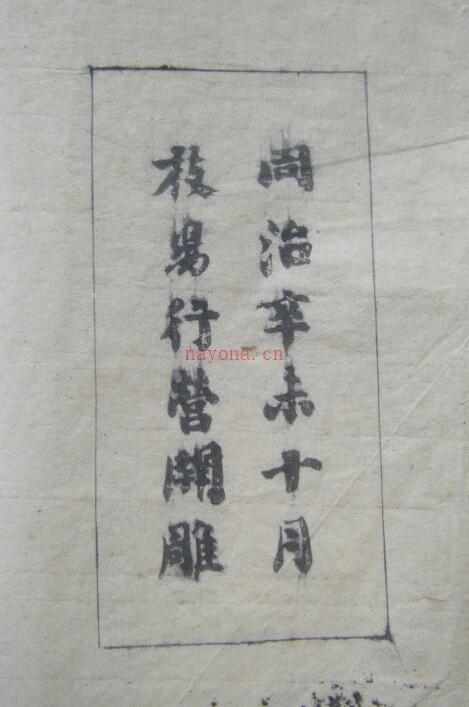 同治辛未十月
枝昜行營開雕
nayona.cn